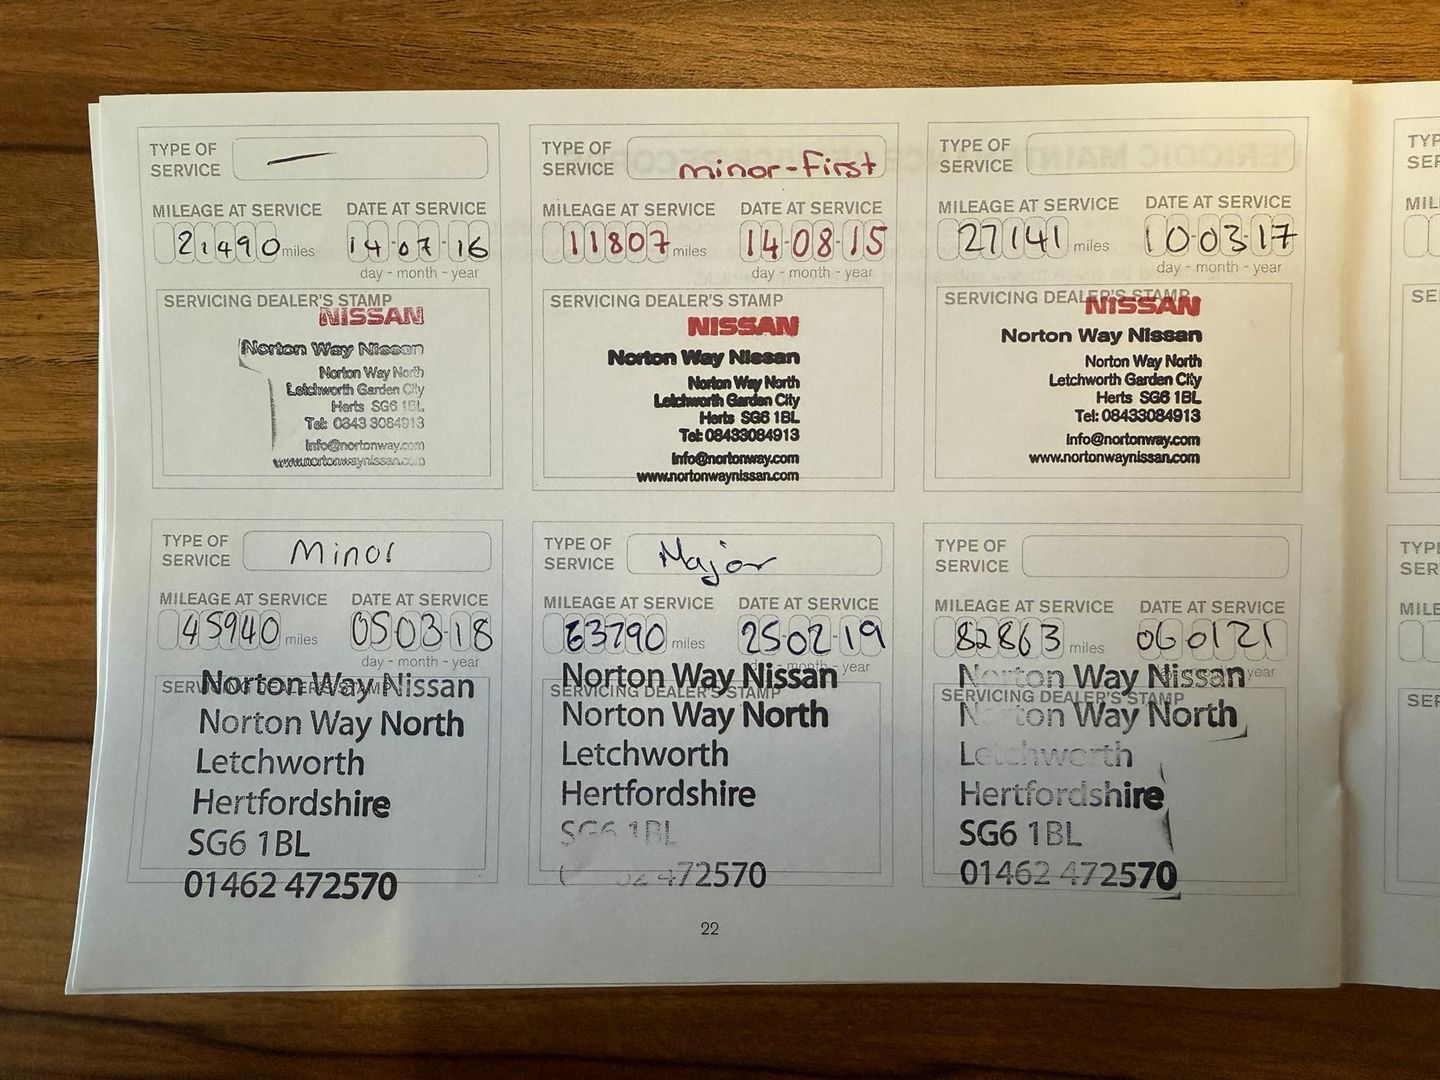 TYPE OF
SERVICE
MILEAGE AT SERVICE DATE AT SERVICE
21490 miles 14-07-16
day - month - year
SERVICING DEALER'S STAMP
NISSAN
Norton Way Nissan
Norton Way North
Letchworth Garden City
Herts SG6 1BL
Tel: 0843 3084913
info@nortonway.com
www.nortonwaynissan.com
TYPE OF
SERVICE minor-First
MILEAGE AT SERVICE DATE AT SERVICE
11807 miles 14-08-15
day - month - year
SERVICING DEALER'S STAMP
NISSAN
Norton Way Nissan
Norton Way North
Letchworth Garden City
Herts SG6 1BL
Tel: 08433084913
info@nortonway.com
www.nortonwaynissan.com
TYPE OF
SERVICE
MILEAGE AT SERVICE DATE AT SERVICE
27141 miles 10-03-17
day - month - year
SERVICING DEALER'S STAMP
NISSAN
Norton Way Nissan
Norton Way North
Letchworth Garden City
Herts SG6 1BL
Tel: 08433084913
info@nortonway.com
www.nortonwaynissan.com
TYPE OF
SERVICE Minor
MILEAGE AT SERVICE DATE AT SERVICE
45940 miles 05 03-18
day - month - year
SERVICING DEALER'S STAMP
Norton Way Nissan
Norton Way North
Letchworth
Hertfordshire
SG6 1BL
01462 472570
TYPE OF
SERVICE Major
MILEAGE AT SERVICE DATE AT SERVICE
63790 miles 25 02-19
day - month - year
SERVICING DEALER'S STAMP
Norton Way Nissan
Norton Way North
Letchworth
Hertfordshire
SG6 1BL
472570
TYPE OF
SERVICE
MILEAGE AT SERVICE DATE AT SERVICE
82863 miles 06 01 21
year
SERVICING DEALER'S STAMP
Norton Way Nissan
Norton Way North
Letchworth
Hertfordshire
SG6 1BL
01462 472570
22